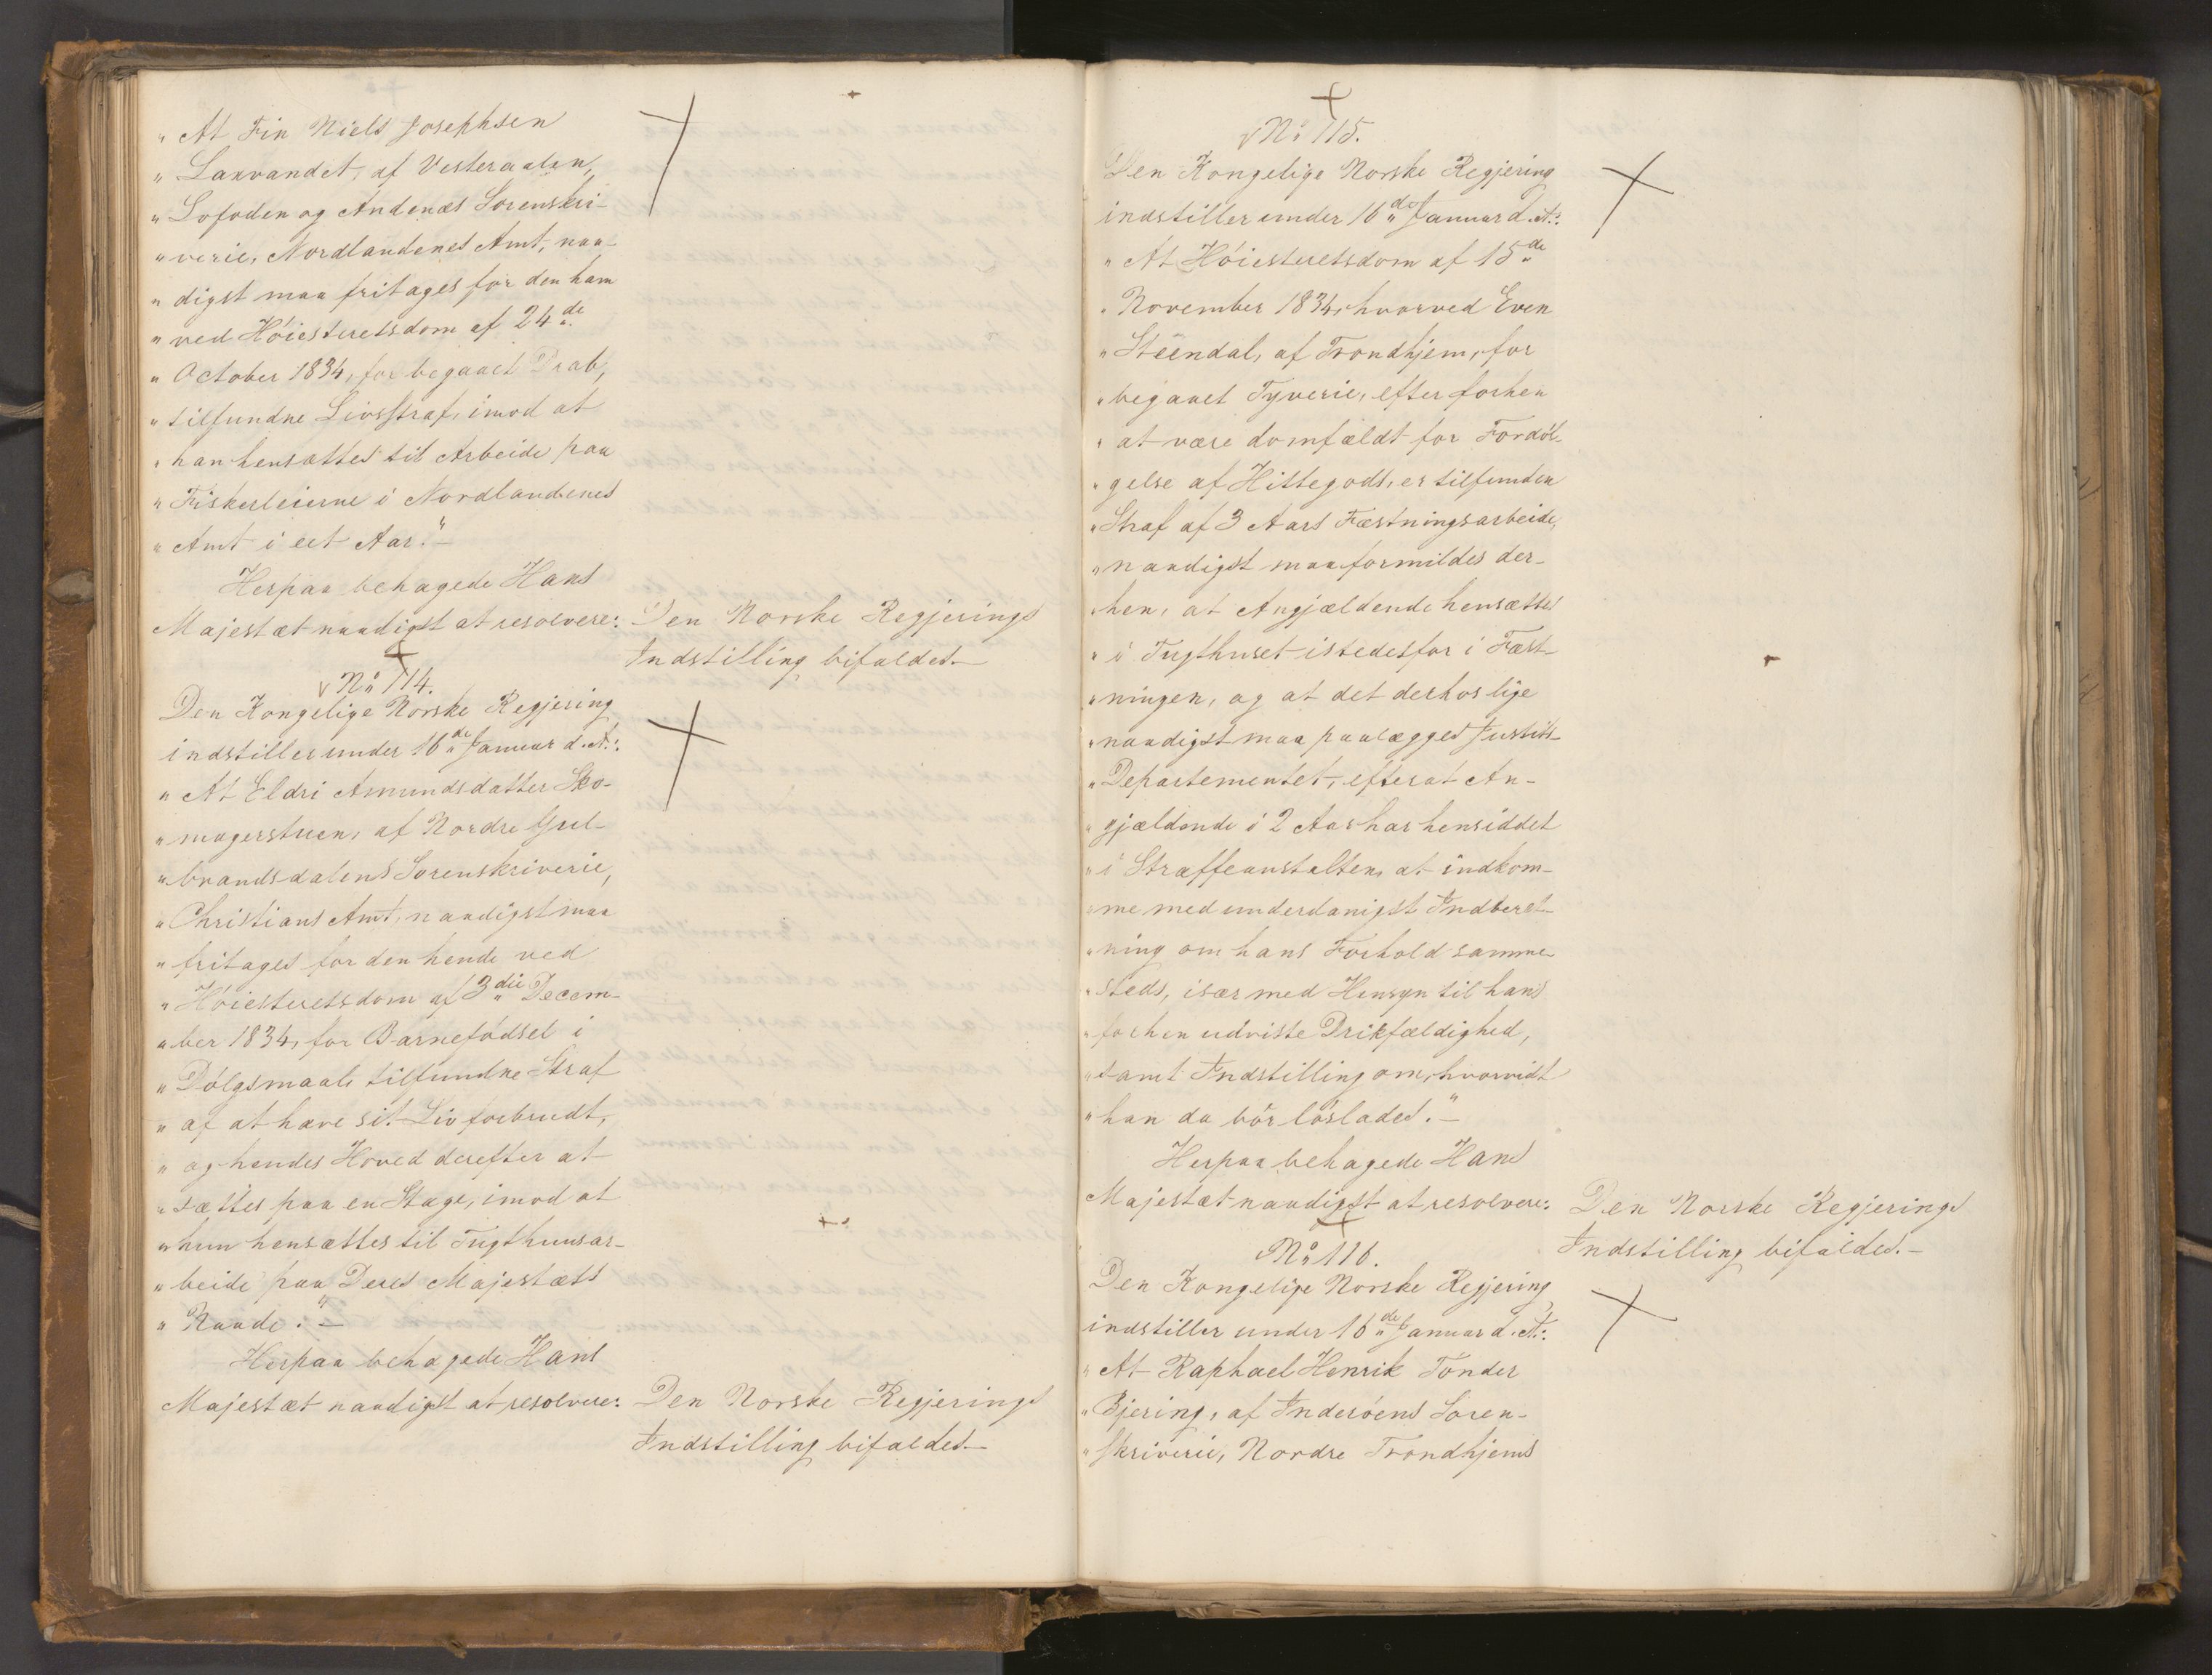 „ At Fin Niels Josephsen
„ Laxvandet, af Vesteraalen,
„ Lofoden og Andenæs Sorenskri-
„ verie, Nordlandenes Amt, naa-
„ digst maa fritages for den ham
„ ved Höiesteretsdom af 24de
„ October 1834, for begaaet Drab,
„ tilfundne Livsstraf, imod at
„ han hensættes til Arbeide paa
„ Fiskerleierne i Nordlandenes
„ Amt i eet Aar."-
Herpaa behagede Hans
Majestæt naadigst at resolvere:
Den Norske Regjerings
Indstilling bifaldes.-
No 114.
Den Kongelige Norske Regjering
indstiller under 16de Januar d. A.:
„ At Eldri Amundsdatter Sko-
„ magerstuen, af Nordre Gul-
„ brandsdalens Sorenskriverie,
„ Christians Amt, naadigst maa
„ fritages for den hende ved
„ Höiesteretsdom af 3die Decem-
„ ber 1834, for Barnefödsel i
„ Dölgsmaal, tilfundne Straf
„ af at have sit Liv forbrudt,
„ og hendes Hoved derefter at
„ sættes paa en Stage, imod at
„ hun hensættes til Tugthuusar-
„ beide paa Deres Majestæts
„ Naade."-
Herpaa behagede Hans
Majestæt naadigst at resolvere:
Den Norske Regjerings
Indstilling bifaldes.-
No 115.
Den Kongelige Norske Regjering
indstiller under 16de Januar d. A.:
„ At Höiesteretsdom af 15de
„ November 1834, hvorved Even
„ Stëendal, af Trondhjem, for
„ begaaet Tyverie, efter forhen
„ at være domfældt for Fordöl-
„ gelse af Hittegods, er tilfunden
„ Straf af 3 Aars Fæstningsarbeide,
„ naadigst maa formildes der-
„ hen, at Angjældende hensættes
„ i Tugthuset istedetfor i Fæst-
„ ningen, og at det derhos lige
„ naadigst maa paalægges Justits-
„ Departementet, efterat An-
„ gjældende i 2 Aar har hensiddet
„ i Straffeanstalten, at indkom-
„ me med underdanigst Indberet-
„ ning om hans Forhold samme-
„ steds, især med Hensyn til hans
„ forhen udviste Drikfældighed,
„ samt Indstilling om, hvorvidt
„ han da bör löslades."-
Herpaa behagede Hans
Majestæt naadigst at resolvere:
Den Norske Regjerings
Indstilling bifaldes.-
No 116.
Den Kongelige Norske Regjering
indstiller under 16de Januar d. A.:
„ At Raphael Henrik Tönder
„ Bjering, af Inderöens Soren-
„ skriverie, Nordre Trondhjems